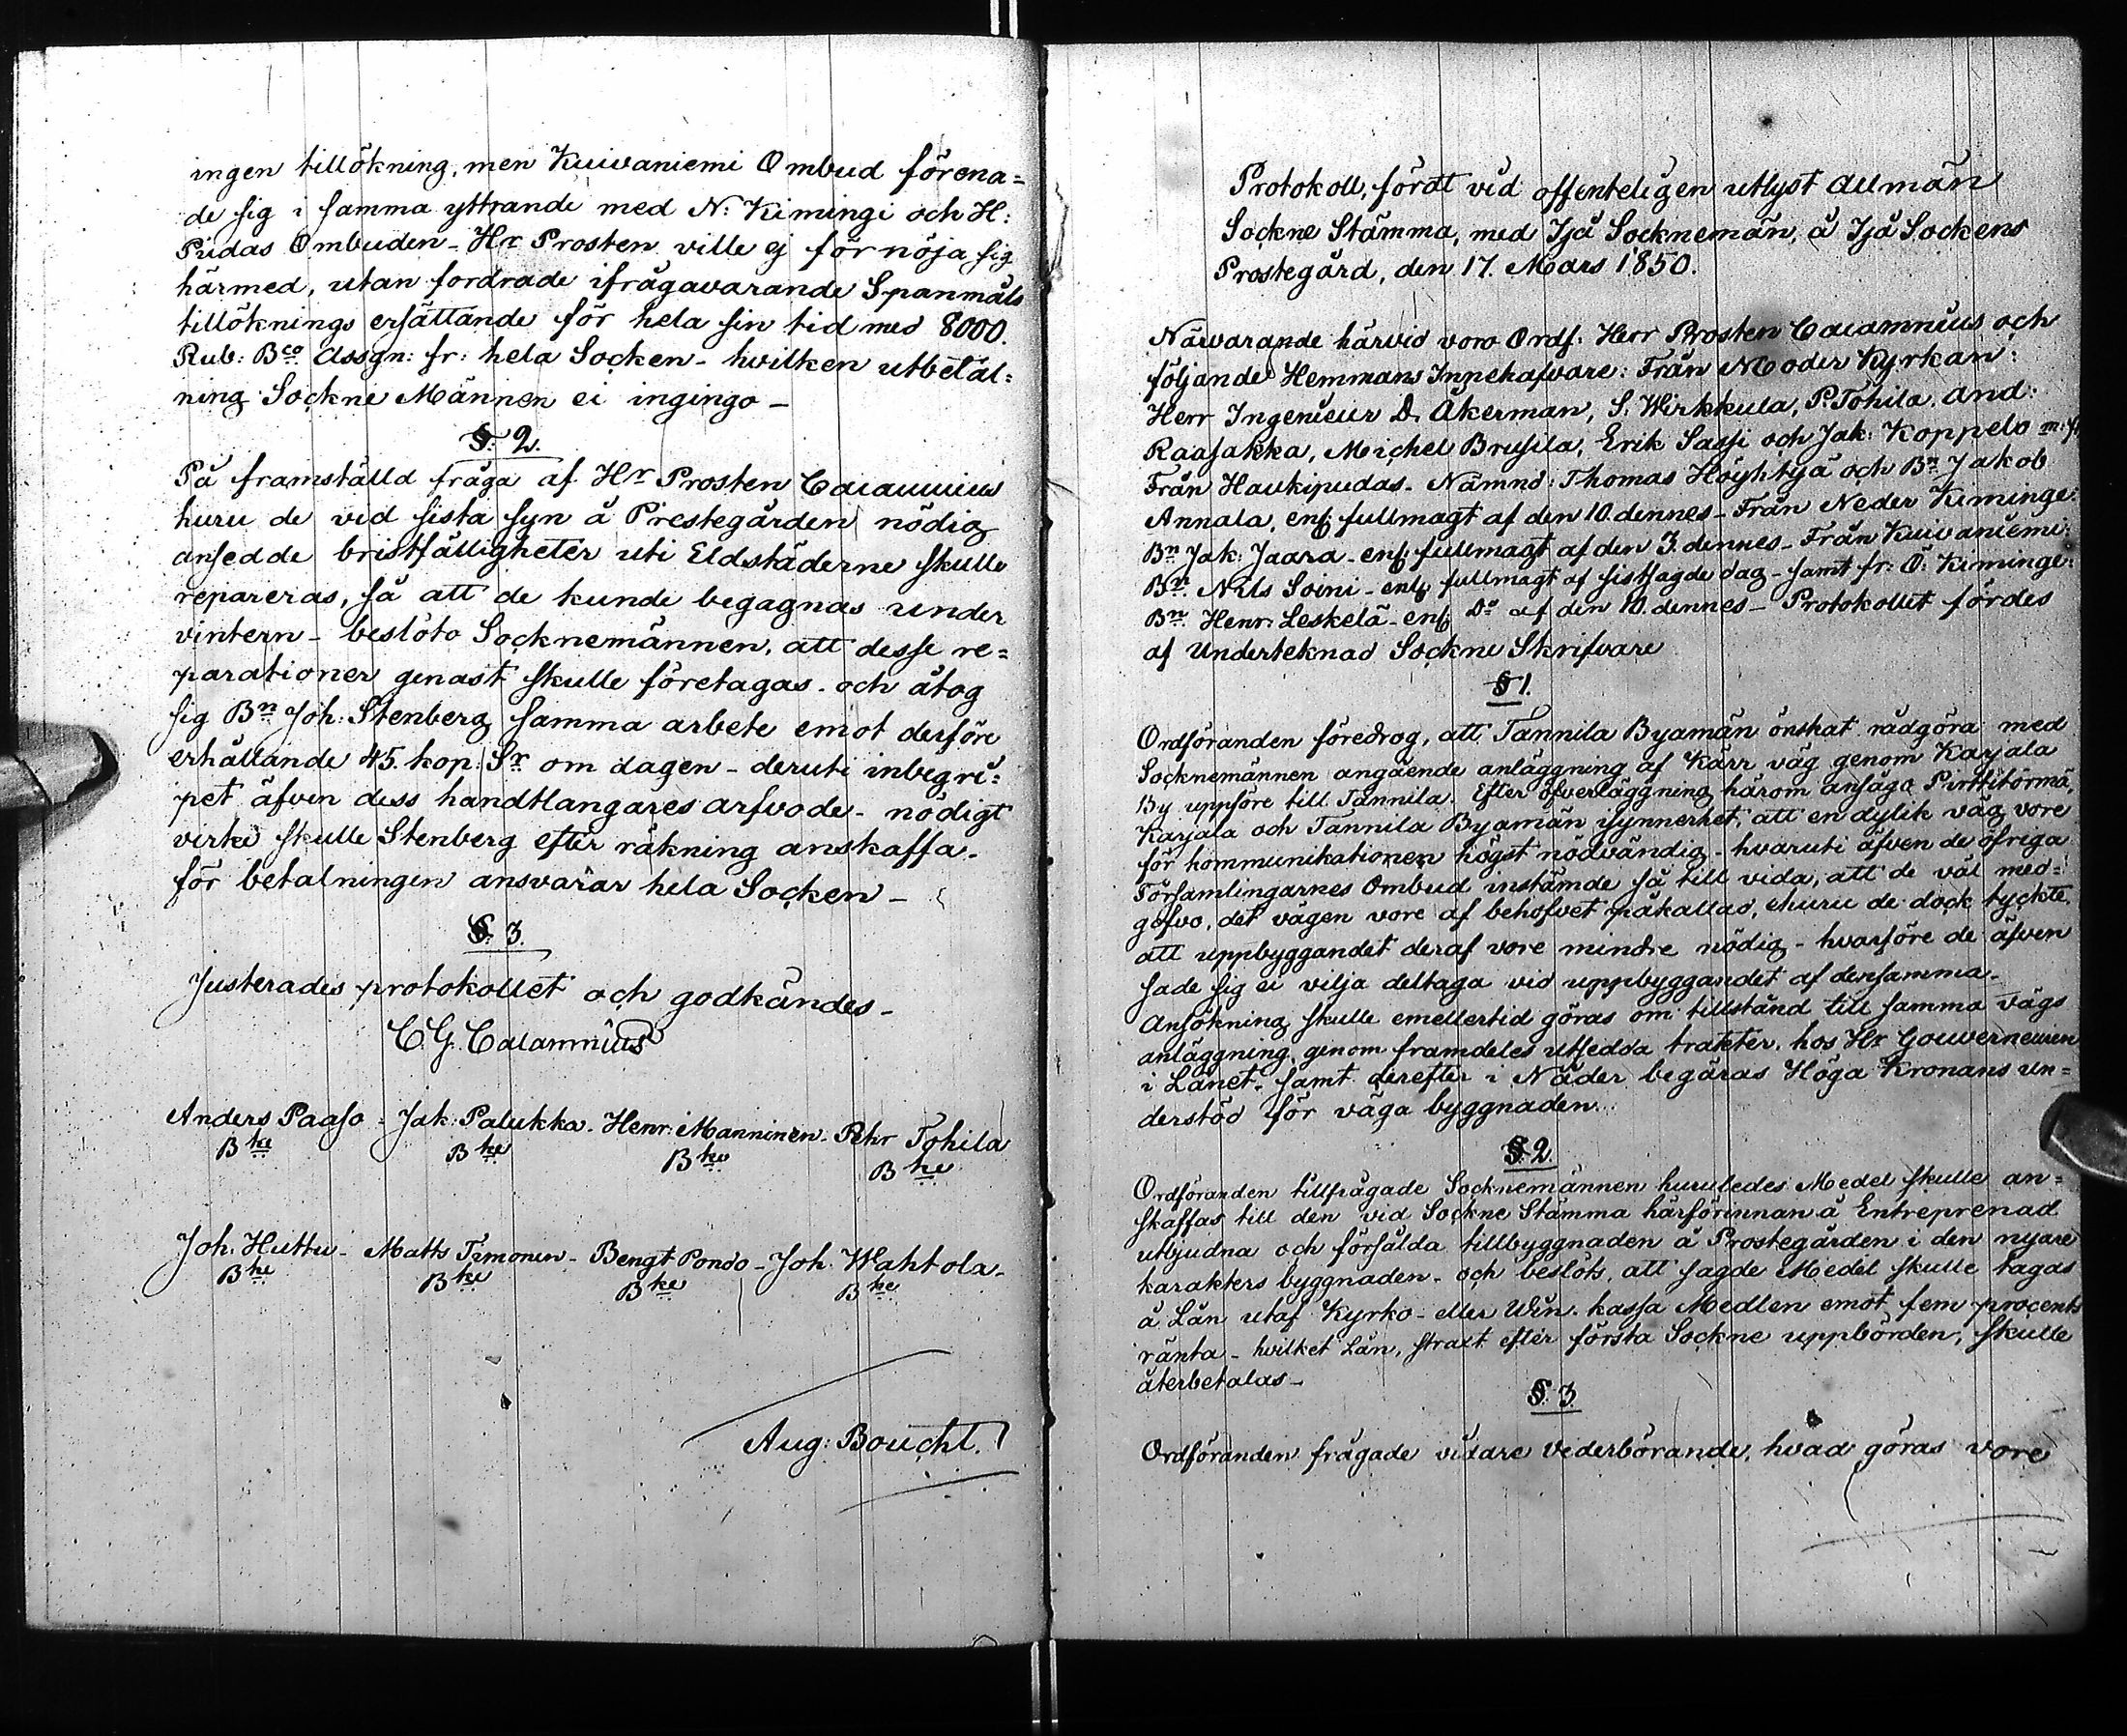 ingen tillökning, men Kuivaniemi Ombud förena=
de sig i samma yttrande med N: Kimingi och H:
Pudas Ombuden - Hr Prosten ville ej förnöja sig
härmed, utan fordrade ifrågavarande Spanmåls
tilloknings ersättande för hela sin tid med 8000.
Rub: Bco Assgn: fr: hela Socken - hvilken utbetal=
ning Sockne Männen ei ingingo -
§. 2.
På framställd fråga af Hr Prosten Calamnius
huru de vid sista syn å Prestegården nödig
ansedde bristfälligheter uti Eldstäderne skulle
repareras, så att de kunde begagnas under
vintern - beslöto Socknemännen, att desse re=
parationer genast skulle företagas - och åtog
sig Bn Joh: Stenberg samma arbete emot derföre
erhållande 45. kop: Sr om dagen - deruti inbegri=
pet äfven dess handtlangares arfvode - nödigt
virke skulle Stenberg efter räkning anskaffa -
för betalningen ansvarar hela Socken -
§. 3.
Justerades protokollet och godkändes -
C. G. Calamnius
Anders Paaso - Jak: Palukka - Henr: Manninen - Pehr Tohila
Bde Bde Bde Bde
Joh. Huttu - Matts Timonen - Bengt Pondo - Joh. Wahtola -
Bde Bde Bde Bde
Aug: Boucht.
Protokoll, fördt vid offenteligen utlyst allmän
Sockne Stämma, med Ijå Socknemän, å Ijå Sockens
Prostegård, den 17. Mars 1850.
Närvarande härvid voro Ordf: Herr Prosten Calamnius och
följande Hemmans Innehafvare: Från Moder Kyrkan:
Herr Ingenieur D. Åkerman, S. Wirkkula, P. Tohila. And:
Raasakka, Michel Brusila, Erik Sassi och Jak: Koppelo m: fl
Från Haukipudas - Nämnd: Thomas Höyhtyä och Bn Jakob
Annala, enl: fullmagt af den 10. dennes - Från Neder Kiminge:
Bn Jak: Jaara - enl: fullmagt af den 3. dennes - Från Kuivaniemi:
Bn. Nils Soini - enl: fullmagt af sistsagde dag - samt fr: Ö: Kiminge:
Bn. Henr: Leskelä - enl: Do af den 10. dennes - Protokollet fördes
af Underteknad Sockne Skrifvare
§ 1.
Ordföranden föredrog, att Tannila Byamän önskat rådgöra med
Socknemännen angående anläggning af Kärr väg genom Karjala
By uppföre till Tannila. Efter öfverläggning härom ansågo Pirttitörmä,
Karjala och Tannila Byamän synnerhet, att en dylik väg vore
för kommunikationen högst nödvändig - hvaruti äfven de öfriga
Församlingarnes Ombud instämde så till vida, att de väl med=
gofvo, det vägen vore af behofvet påkallad, ehuru de dock tyckte
att uppbyggandet deraf vore mindre nödig - hvarföre de äfven
sade sig ei vilja deltaga vid uppbyggandet af densamma -
Ansökning skulle emellertid göras om tillstånd till samma vägs
anläggning, genom framdeles utsedda trakter, hos Hr Gouverneuren
i Länet - samt derefter i Nåder begäras Höga Kronans un=
derstöd för väga byggnaden.
§ 2.
Ordföranden tillfrågade Socknemännen huruledes Medel skulle an=
skaffas till den vid Sockne Stämma härförinnan å Entreprenad
utbjudna och försålda tillbyggnaden å Prostegården i den nyare
karakters byggnaden - och beslöts, att sagde Medel skulle tagas
å Lån utaf Kyrko- eller Win. kassa Medlen emot fem procents
ränta - hvilket Lån, straxt efter första Sockne uppbörden, skulle
återbetalas -
§. 3.
Ordföranden frågade vidare vederbörande, hvad göras vore